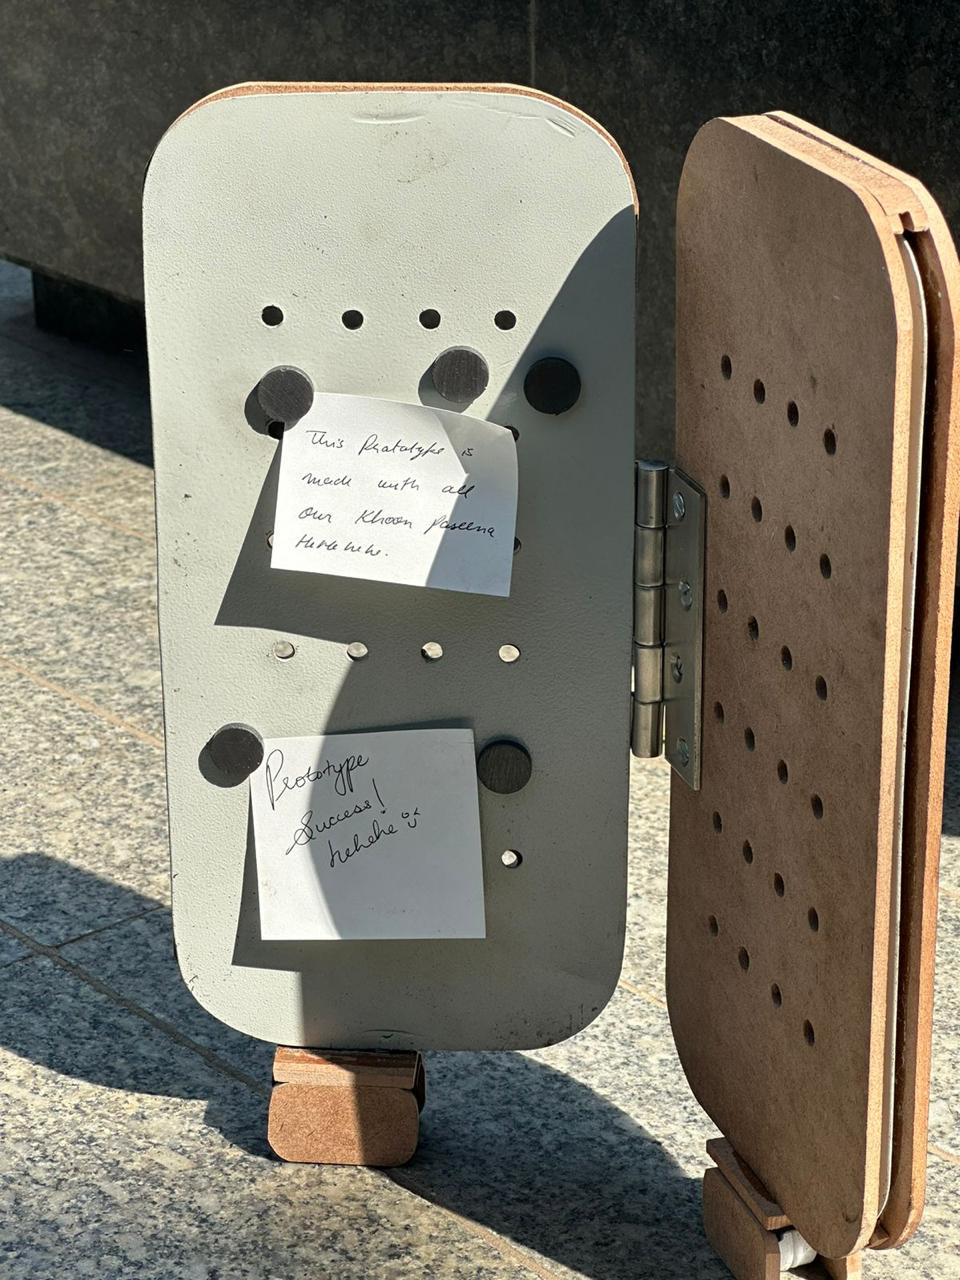 This Prototype is
made with all
our Khoon Paseena
Hehehehe.
Prototype
Success!
hehehe